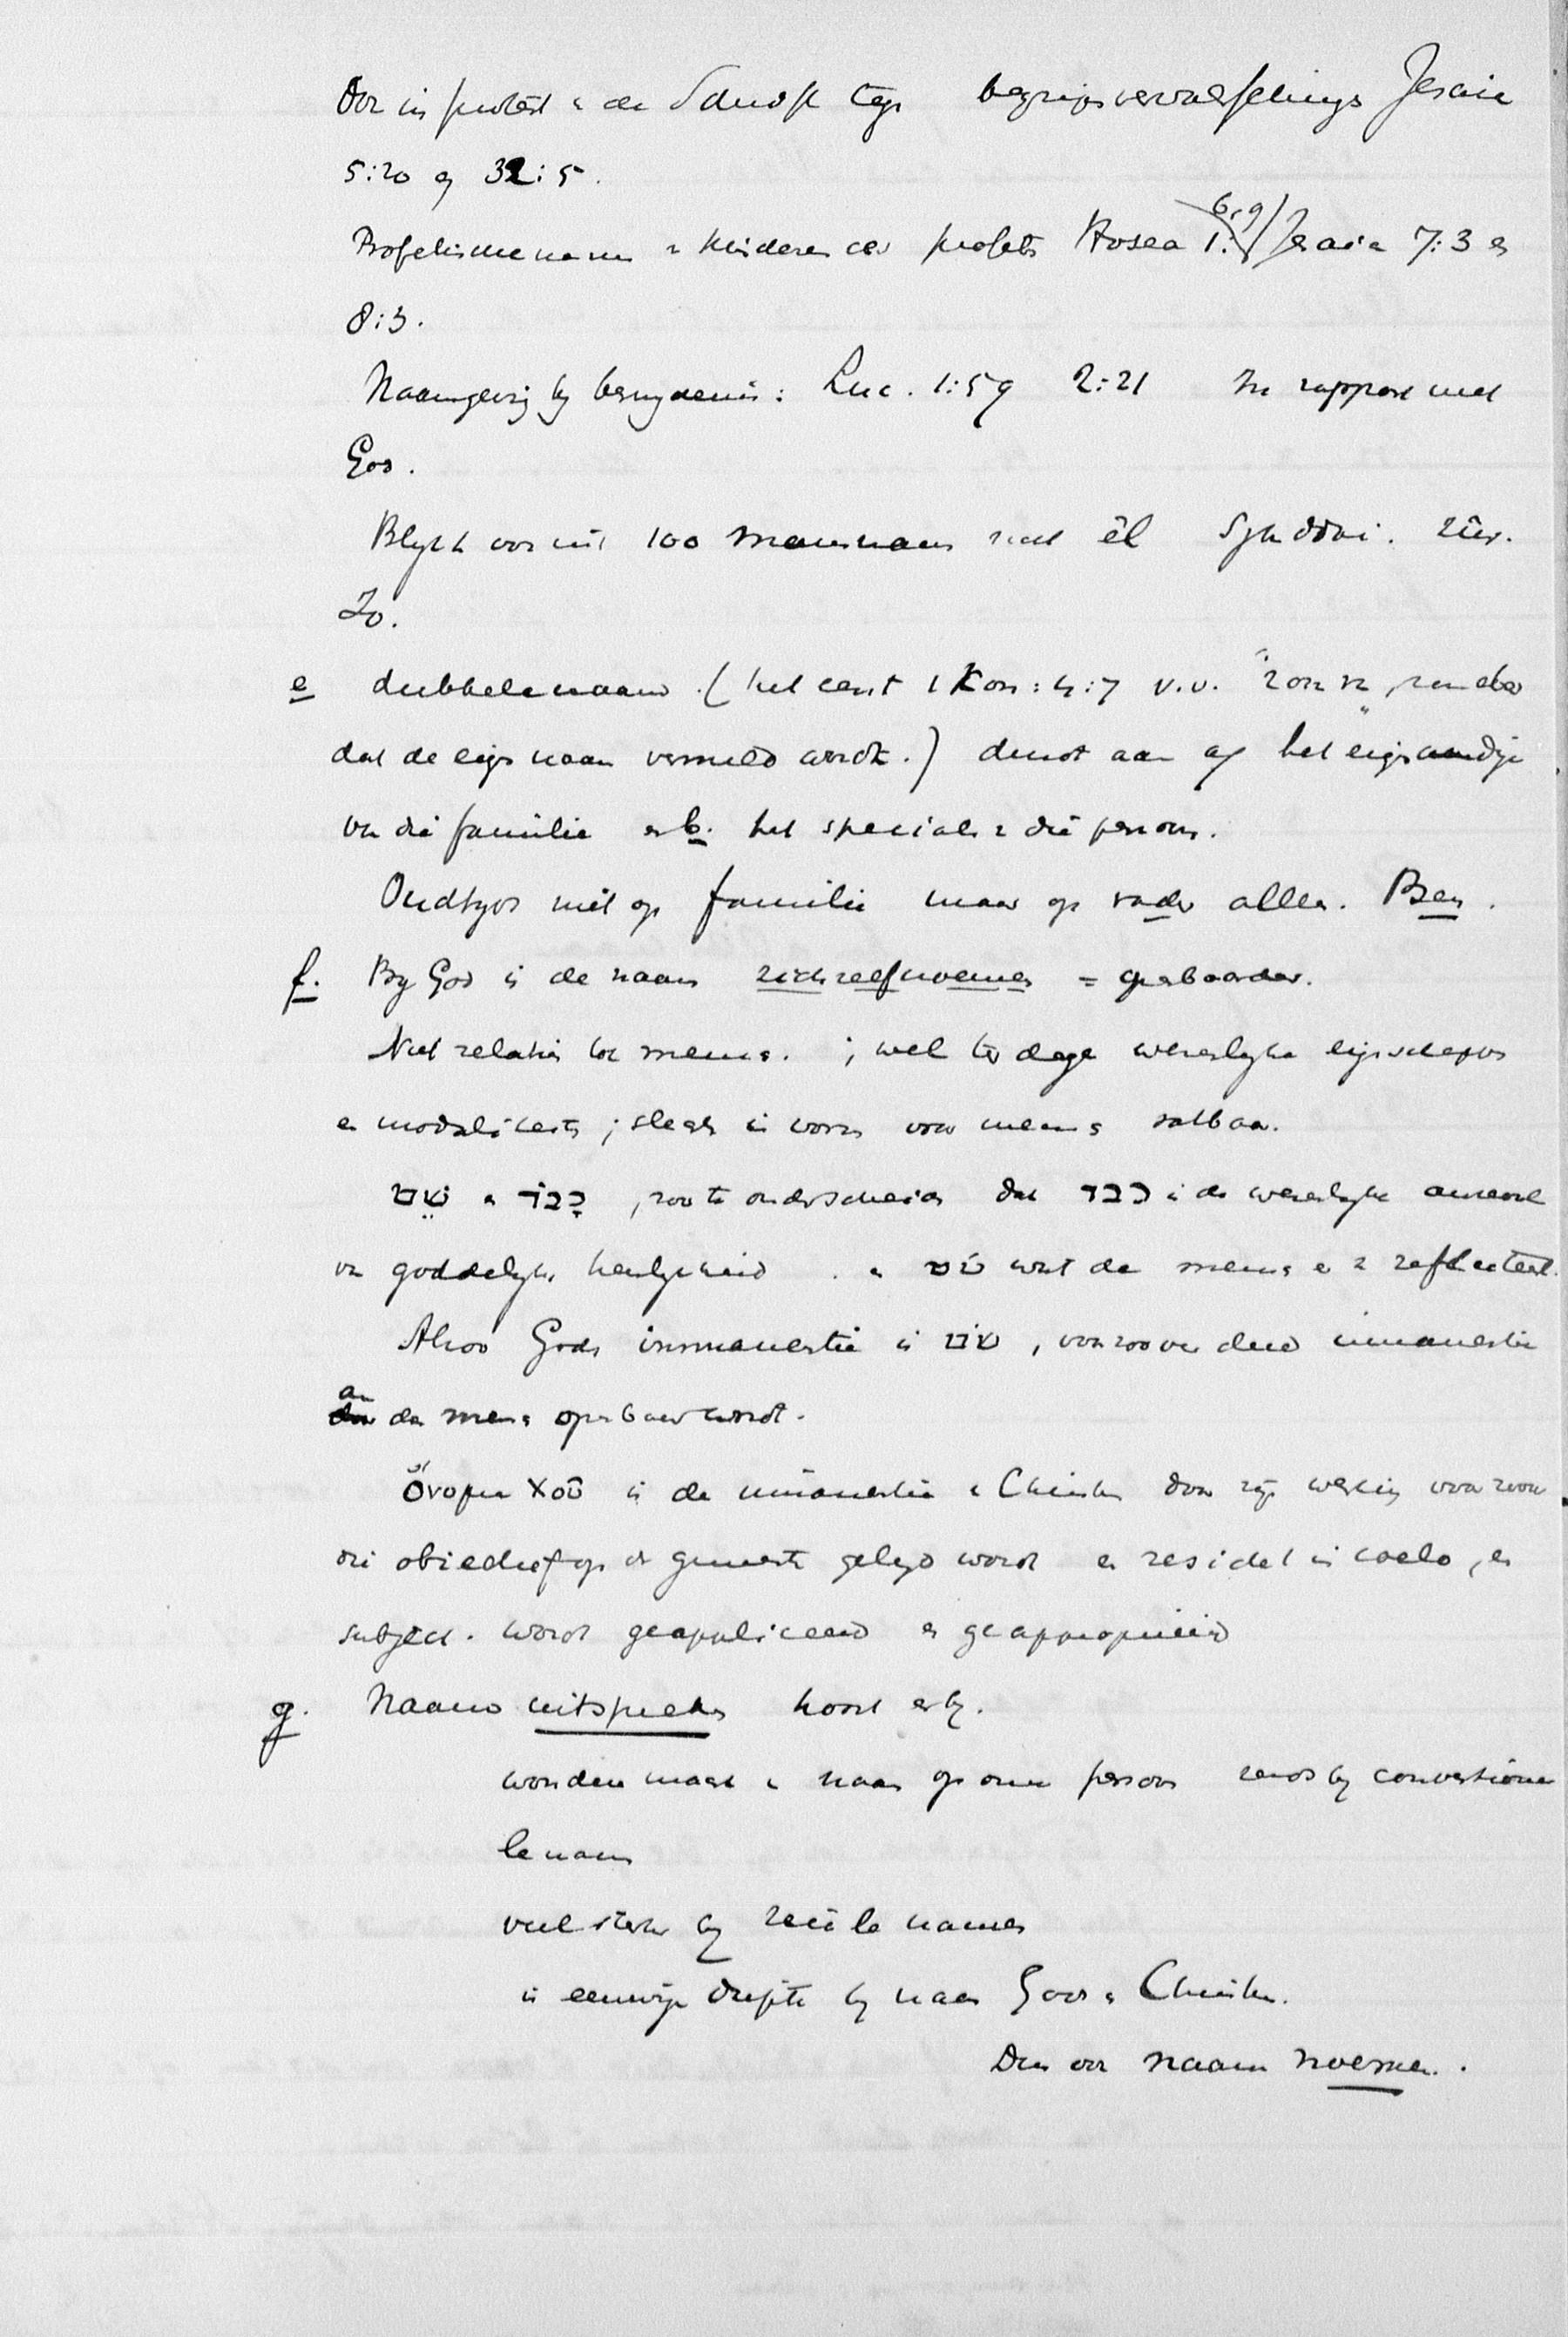 Door in protest v de Schrift tegen begripsvervalschings Jesaia
5:20 en 32:5.
Profetische namen v kinderen der profeten Hosea 1: 6, 9 / Jesaia 7:3 en
8:3.
Naamgeving by besnydenis: Luc. 1:59 2:21 In rapport met
God.
Blykt ook uit 100 mansnamen met êl Sjaddai. zûr.
Jo.
e dubbele naam. (het eerst 1 Kon: 4:7 v.v. "zoon v", zonder
dat de eigen naam vermeld wordt.) duidt aan a/ het eigenaardige
van die familie en b. het speciale v die persoon.
Oudtyds niet op familie maar op vader alleen. Ben.
f. By God is de naam zichzelfnoemen = openbaren.
Niet relatie tot mensch. ; wel ter dege wezenlyke eigenschappen
en modaliteiten ; slechts in vorm voor mensch vatbaar.
שֵׁם en כָּבוֹד, zoo te onderscheiden dat כבד is de wezenlyke
v goddelyke heerlykheid. en שם wat de mensch er v reflecteert.
Alzoo Gods immanentie is שם, voorzoover deze immanentie
aan de mensch openbaar wordt.
ὄνομα Χοῦ is de immanentie v Christus door zyn werking voorzoover
die objectief op de gemeente gelegd wordt en residet in coelo, en
subject. wordt geappliceerd en geapproprieerd
g. Naam uitspreken hoort erby.
wonden macht v naam op onze persoon reeds by conventione
le naam
veel sterker by reëele namen
in eeuwige diepte by naam Gods en Christus.
Den naam noemen.